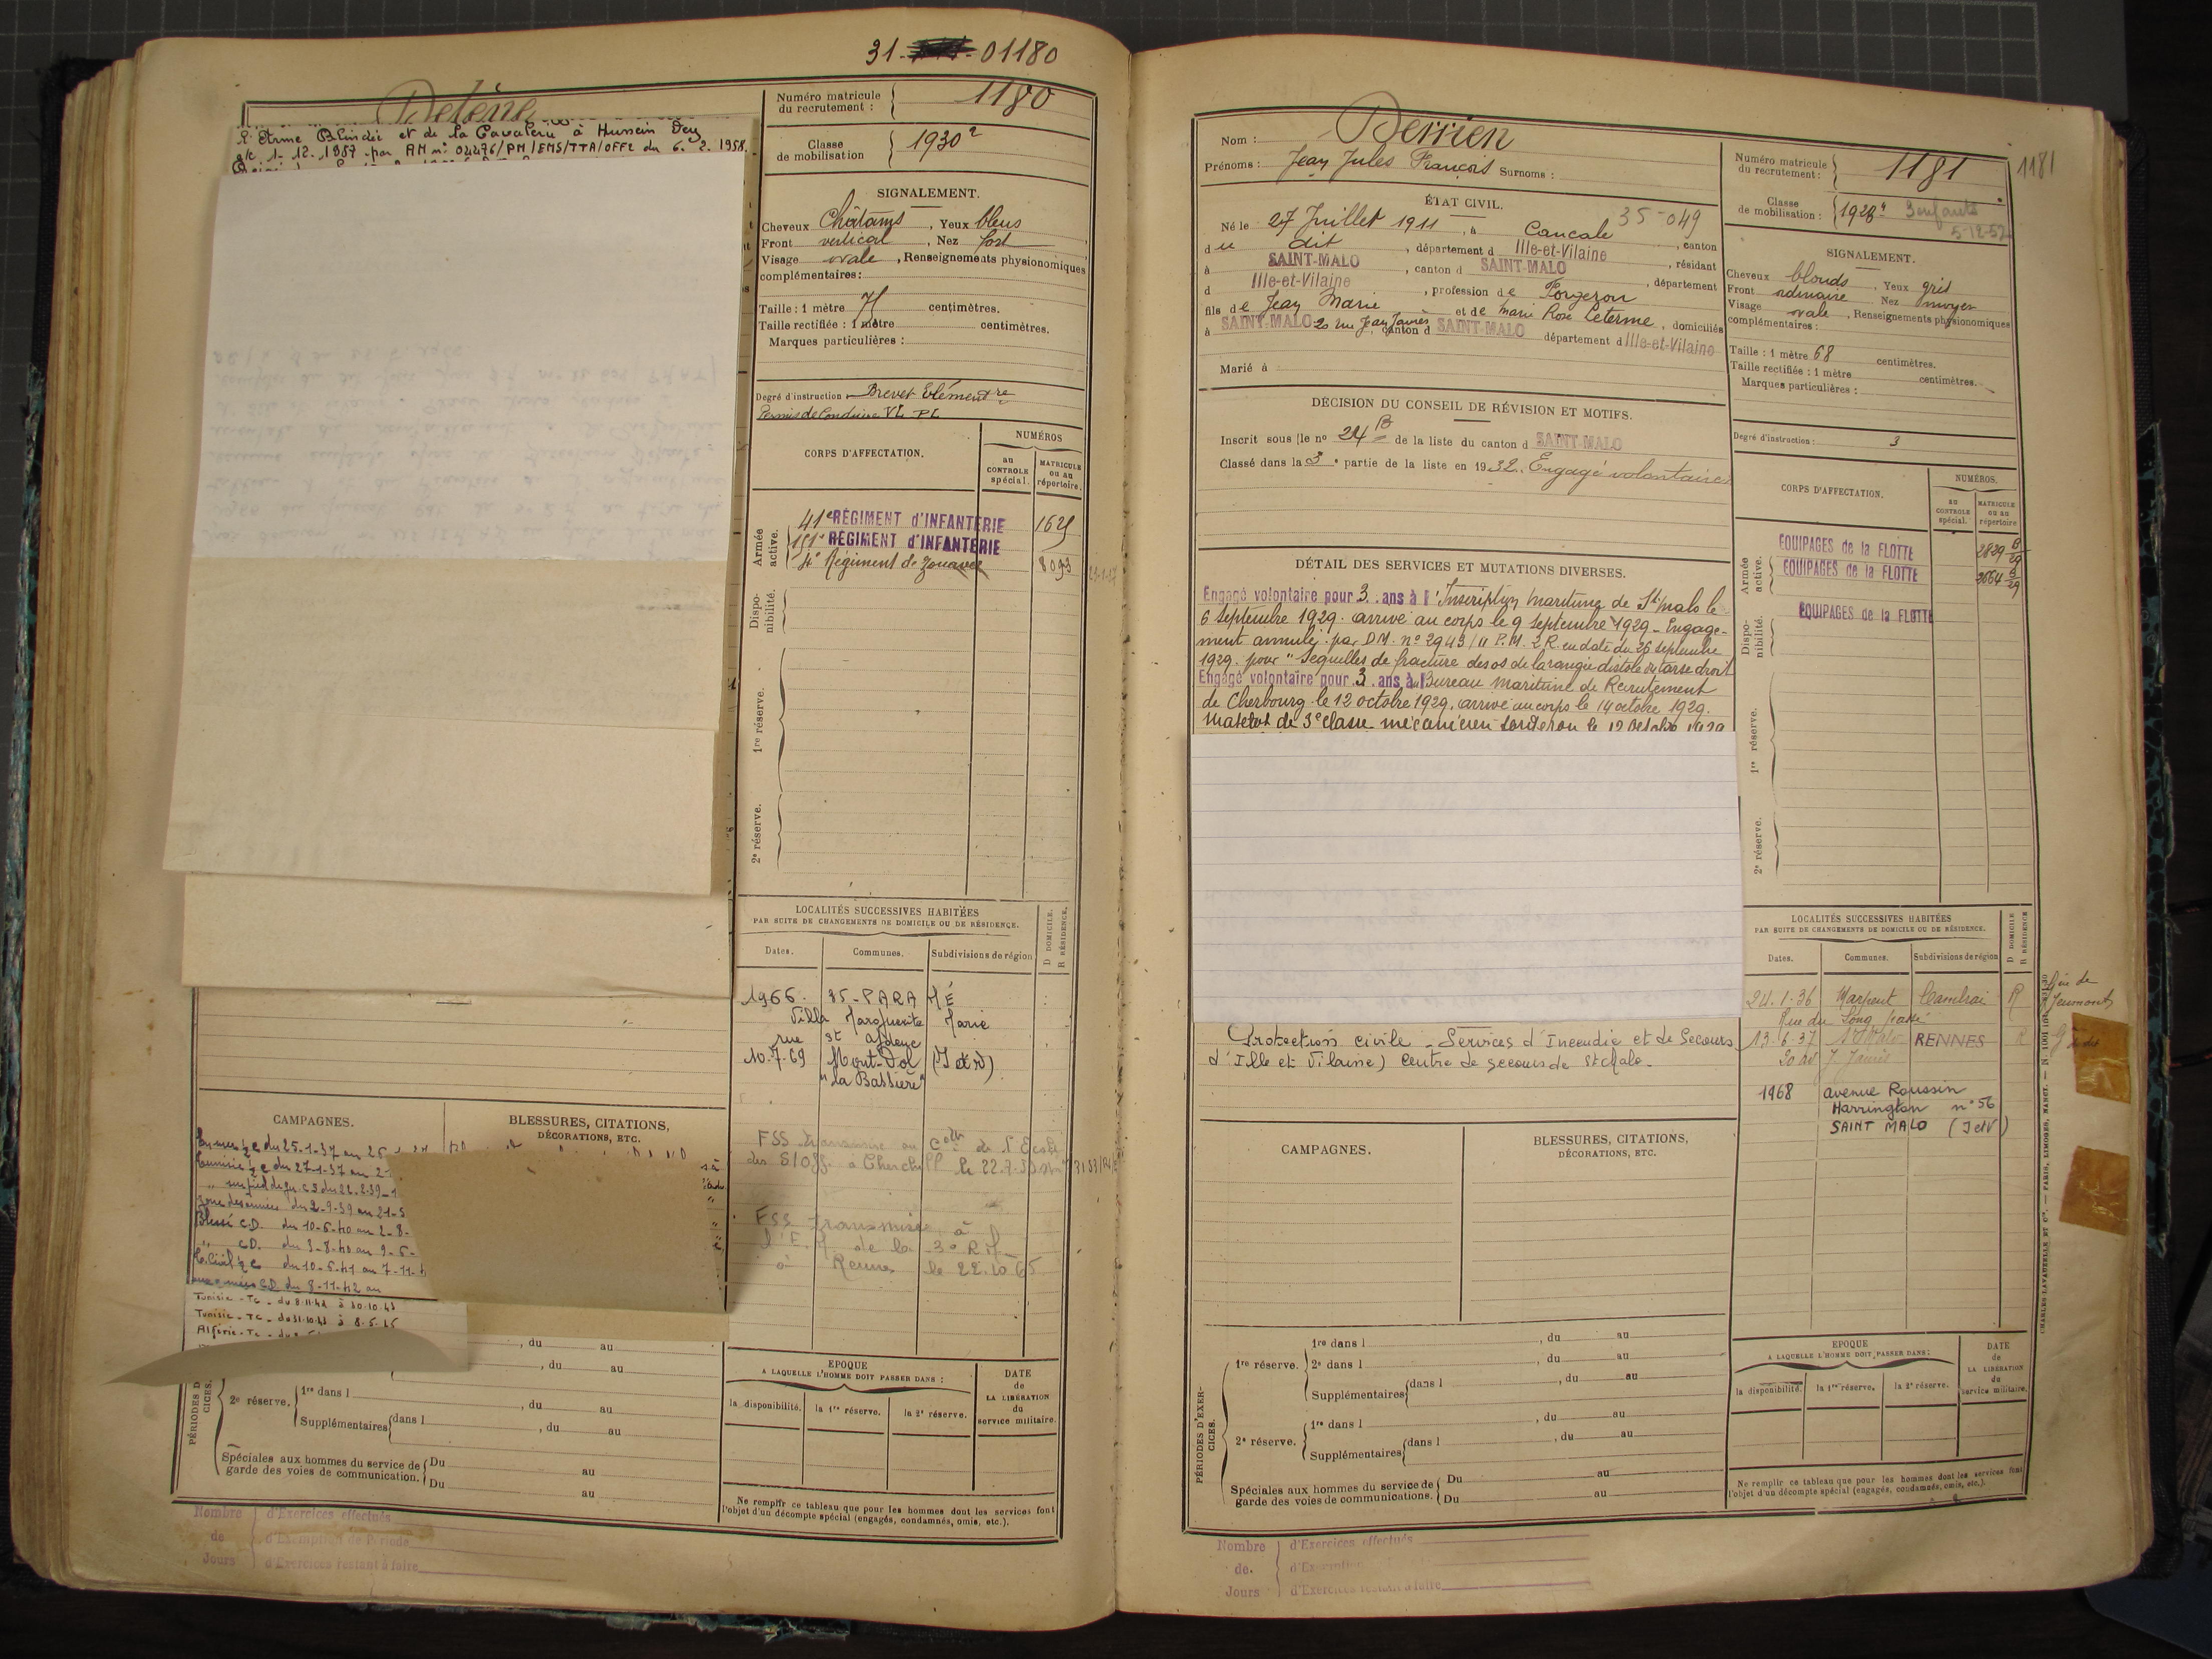 31-01180
Numéro matricule
du recrutement :
1180
l'Arme Blindée et de la Cavalerie à Hussein Dey
1-12-1957 par AM n° 04476/PM/EMS/TTA/OFF2 du 6.2.1958.
Classe
de mobilisation
1930
SIGNALEMENT.
Cheveux Châtains, Yeux bleus
Front vertical, Nez fort
Visage ovale, Renseignements physionomiques
complémentaires :
Taille : 1 mètre 71 centimètres.
Taille rectifiée : 1 mètre centimètres.
Marques particulières :
Degré d'instruction Brevet Élémentre
Permis de Conduire VL - PL
CORPS D'AFFECTATION.
NUMÉROS
au
CONTROLE
spécial.
MATRICULE
ou au
répertoire.
Armée
active.
41e RÉGIMENT d'INFANTERIE
151e RÉGIMENT d'INFANTERIE
4e Régiment de Zouaves
8093
Dispo-
nibilité.
1re réserve.
2e réserve.
LOCALITÉS SUCCESSIVES HABITÉES
PAR SUITE DE CHANGEMENTS DE DOMICILE OU DE RÉSIDENCE.
D DOMICILE.
R RÉSIDENCE.
Dates.
Communes.
Subdivisions de région
1966. 35-PARAMÉ
Villa Marguerite Marie
rue St
10.7.69 Mont-Dol (I et V)
"la Bassière"
CAMPAGNES.
BLESSURES, CITATIONS,
DÉCORATIONS, ETC.
du 25-1-37 au 26
du 27-1-37 au 2
du 2-9-39 au 21-5
Blessé C.D. du 10-6-40 au 2-8-
C.D. du 3-8-40 au 9-6-
du 10-6-41 au 7-11-4
C.D. du 8-11-42 au
Tunisie - TC - du 8.11.42 à 30.10.43
Tunisie - TC - du 31.10.43 à 8.5.45
Algérie - TC -
FSS transmise au de l'Ecole
des S/Off. à Cherchell le 22.7.
FSS transmise à
l'E.M. de la 3e RM
à Rennes le 22.10.65
, du au
, du au
PÉRIODES D'EXER-
CICES.
2e réserve.
1re dans l , du au
Supplémentaires dans l , du au
Spéciales aux hommes du service de
garde des voies de communication.
Du au
Du au
EPOQUE
A LAQUELLE L'HOMME DOIT PASSER DANS :
la disponibilité.
la 1re réserve.
la 2e réserve.
DATE
de
LA LIBÉRATION
du
service militaire.
Ne remplir ce tableau que pour les hommes dont les services font
l'objet d'un décompte spécial (engagés, condamnés, omis, etc.).
Nombre
de
Jours
d'Exercices effectués
d'Exemption de Période
d'Exercices restant à faire
Nom : Derrien
Prénoms : Jean Jules François Surnoms :
Numéro matricule
du recrutement :
1181
1181
Classe
de mobilisation :
1928
3 enfants
5-12-52
ÉTAT CIVIL.
35-049
Né le 27 Juillet 1911, à Cancale, canton
du dit, département d Ille-et-Vilaine, résidant
à SAINT-MALO, canton d SAINT-MALO, département
d Ille-et-Vilaine, profession de Forgeron
fils de Jean Marie et de Marie Rose Leterme, domiciliés
à SAINT-MALO 20 rue Jean Jaurès canton d SAINT-MALO département d Ille-et-Vilaine
Marié à
SIGNALEMENT.
Cheveux blonds, Yeux gris
Front ordinaire Nez moyen
Visage ovale, Renseignements physionomiques
complémentaires :
Taille : 1 mètre 68 centimètres.
Taille rectifiée : 1 mètre centimètres.
Marques particulières :
Degré d'instruction : 3
DÉCISION DU CONSEIL DE RÉVISION ET MOTIFS.
Inscrit sous le no 24 B de la liste du canton d SAINT-MALO
Classé dans la 3e partie de la liste en 1932. Engagé volontaire
DÉTAIL DES SERVICES ET MUTATIONS DIVERSES.
Engagé volontaire pour 3 ans à l'Inscription maritime de St Malo le
6 Septembre 1929. arrivé au corps le 9 Septembre 1929 - Engage-
ment annulé par D.M. n° 2943/11 P.M. 2 R. en date du 26 Septembre
1929. pour "Séquelles de fracture des os de la rangée distale du tarse droit
Engagé volontaire pour 3 ans à Bureau maritime de Recrutement
de Cherbourg le 12 octobre 1929, arrivé au corps le 14 octobre 1929.
Matelot de 3e classe mécanicien le 12 Octobre 1929
Protection civile - Services d'Incendie et de Secours
d'Ille et Vilaine) Centre de secours de St Malo -
CORPS D'AFFECTATION.
NUMÉROS.
au
CONTROLE
spécial.
MATRICULE
ou au
répertoire
Armée
active.
ÉQUIPAGES de la FLOTTE 2829 B/29
ÉQUIPAGES de la FLOTTE
Dispo-
nibilité.
ÉQUIPAGES de la FLOTTE
1re réserve.
2e réserve.
LOCALITÉS SUCCESSIVES HABITÉES
PAR SUITE DE CHANGEMENTS DE DOMICILE OU DE RÉSIDENCE.
D DOMICILE
R RÉSIDENCE
Dates.
Communes.
Subdivisions de région
24.1.36 Marpent Cambrai R
Rue du Long
13-6-37 St Malo RENNES R
20 rue J Jaurès
1968 avenue Roussin
Harrington n° 56
SAINT MALO (I et V)
Gie de
Jeumont
CAMPAGNES.
BLESSURES, CITATIONS,
DÉCORATIONS, ETC.
PÉRIODES D'EXER-
CICES.
1re réserve.
1re dans l , du au
2e dans l , du au
Supplémentaires dans l , du au
2e réserve.
1re dans l , du au
Supplémentaires dans l , du au
Spéciales aux hommes du service de
garde des voies de communications.
Du au
Du au
EPOQUE
A LAQUELLE L'HOMME DOIT PASSER DANS :
la disponibilité.
la 1re réserve.
la 2e réserve.
DATE
de
LA LIBÉRATION
du
service militaire.
Ne remplir ce tableau que pour les hommes dont les services font
l'objet d'un décompte spécial (engagés, condamnés, omis, etc.).
CHARLES-LAVAUZELLE ET Cie. — PARIS, LIMOGES, NANCY.
Nombre
de
Jours
d'Exercices effectués
d'Exemption
d'Exercices restant à faire